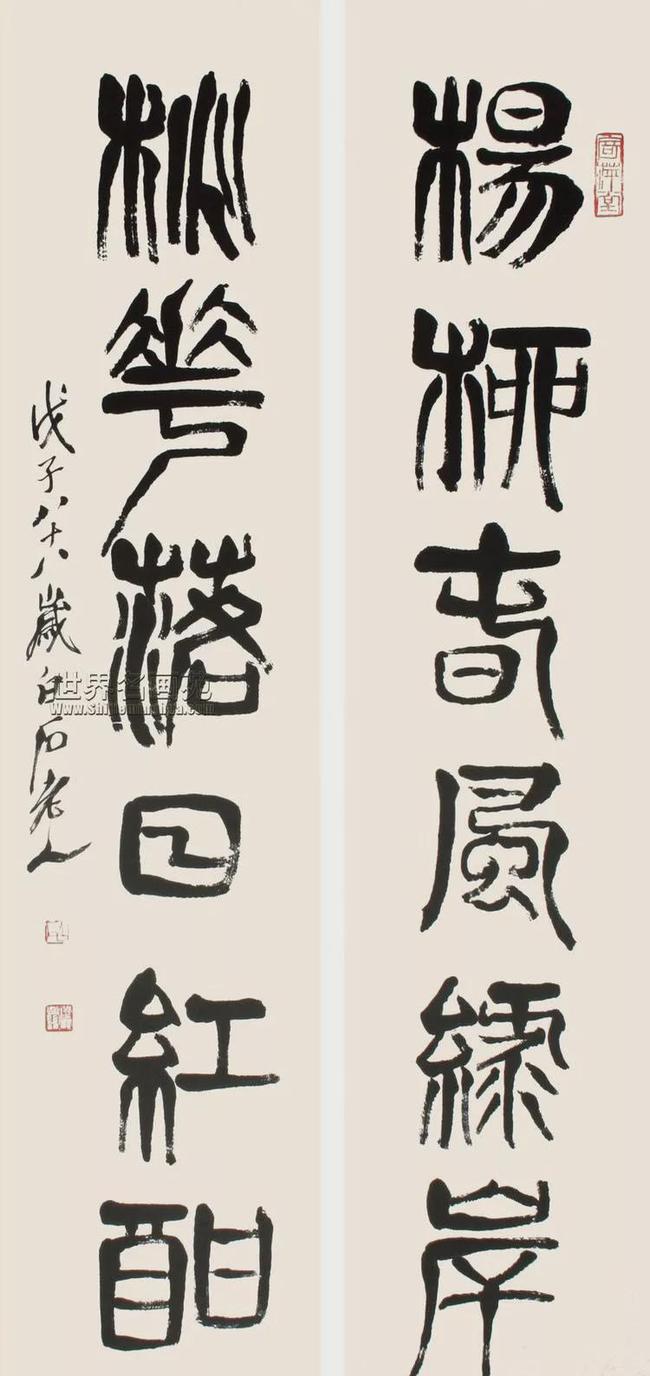 寄萍堂
楊柳春風綠岸
桃花落日紅酣
戊子八十八歲白石老人
世界名画苑